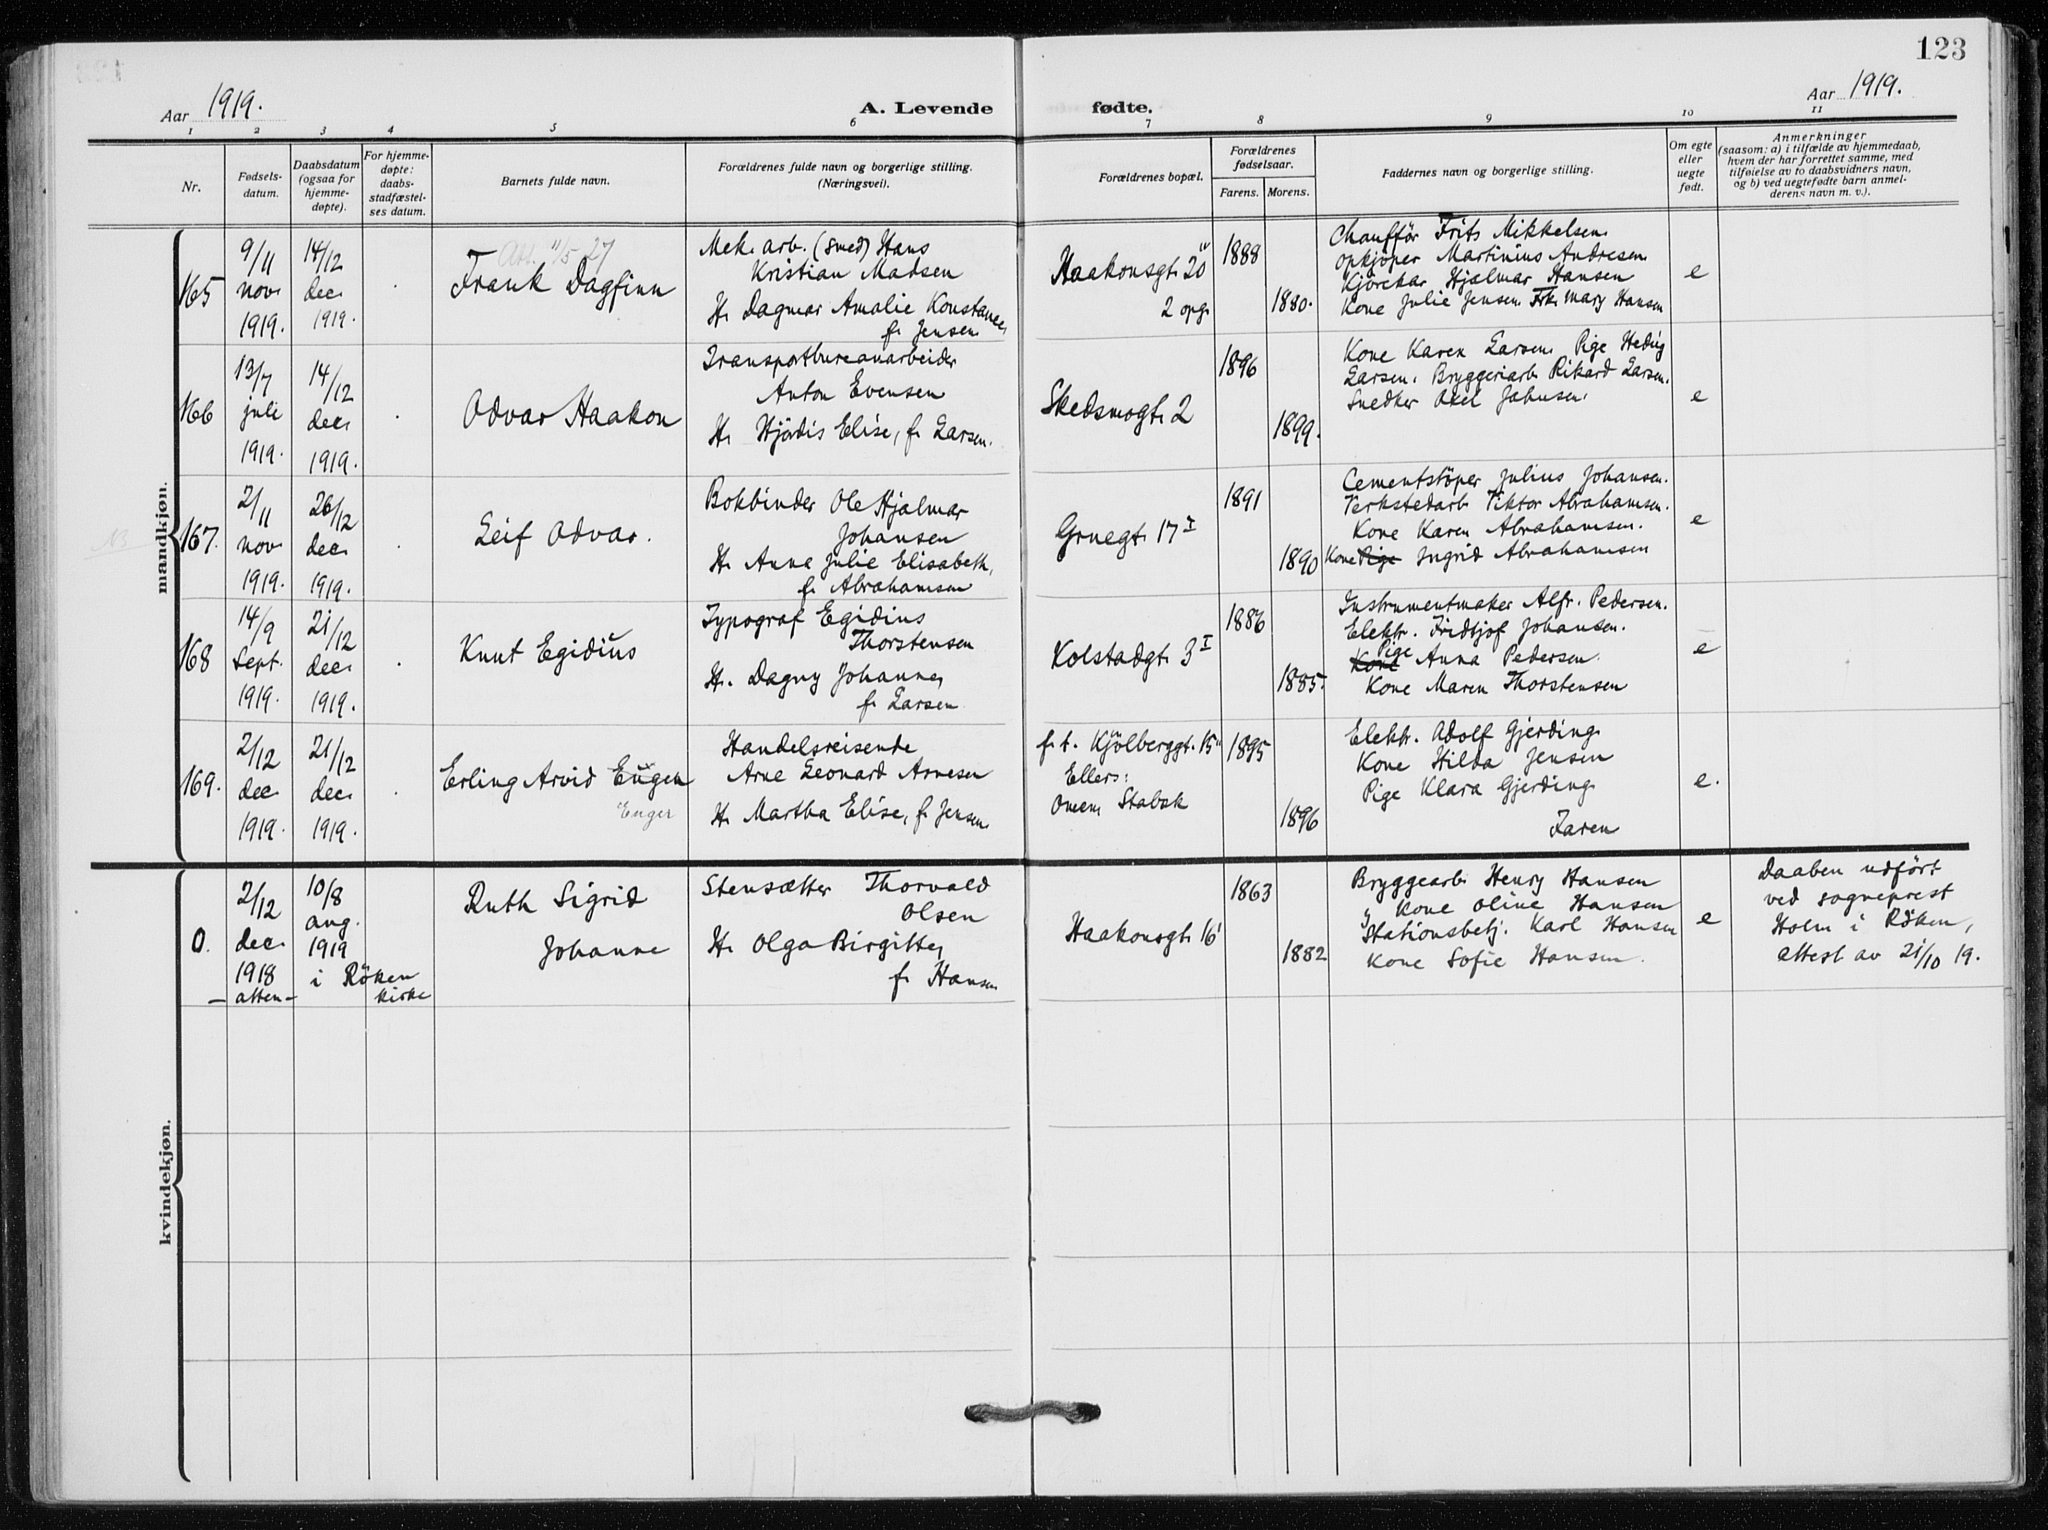 123
Aar 1919.
A. Levende fødte.
Aar 1919.
1 2 3 4 5 6 7 8 9 10 11
Nr.
Fødsels-
datum.
Daabsdatum
(ogsaa for
hjemme-
døpte).
For hjemme-
døpte:
daabs-
stadfæstel-
ses datum.
Barnets fulde navn.
Forældrenes fulde navn og borgerlige stilling.
(Næringsvei).
Forældrenes bopæl.
Forældrenes
fødselsaar.
Farens. Morens.
Faddernes navn og borgerlige stilling.
Om egte
eller
uegte
født.
Anmerkninger
(saasom: a) i tilfælde av hjemmedaab,
hvem der har forrettet samme, med
tilføielse av to daabsvidners navn,
og b) ved uegtefødte barn anmel-
derens navn m. v.).
mandkjøn.
165
9/11
nov.
1919.
14/12
dec.
1919.
Att. 11/5 27
Frank Dagfinn
Mek. arb. (smed) Hans
Kristian Madsen
H. Dagmar Amalie Konstance,
f. Jensen
Haakonsgt. 20 II
2 opg.
1888
1880.
Chauffør Frits Mikkelsen.
opkjøper Martinius Andresen.
Kjørekar Hjalmar Hansen
Kone Julie Jensen. Frk. Mary Hansen
e
166
13/7
juli
1919.
14/12
dec.
1919.
Odvar Haakon
Transportbureauarbeider
Anton Evensen
H. Hjördis Elise, f. Larsen.
Skedsmogt. 2
1896
1899.
Kone Karen Larsen. Pige Hedvig
Larsen. Bryggeriarb. Rikard Larsen.
Snedker Axel Johnsen.
e
167.
2/11
nov.
1919.
26/12
dec.
1919.
Leif Odvar.
Bokbinder Ole Hjalmar
Johansen
H. Anna Julie Elisabeth,
f. Abrahamsen
Gruegt. 17 I
1891
1890
Cementstöper Julius Johansen.
Verkstedarb. Viktor Abrahamsen.
Kone Karen Abrahamsen.
Kone Pige Ingrid Abrahamsen
e
168
14/9
Sept.
1919.
21/12
dec.
1919.
Knut Egidius
Typograf Egidius
Thorstensen
H. Dagny Johanne,
f. Larsen
Kolstadgt. 3 I
1886
1885.
Instrumentmaker Alfr. Pedersen.
Elektr. Fridtjof Johansen.
Pige
Kone Anna Pedersen.
Kone Maren Thorstensen
e
169.
2/12
dec.
1919.
21/12
dec.
1919.
Erling Arvid Eugen
Euger
Handelsreisende
Arne Leonard Arnesen
H. Martha Elise, f. Jensen.
f. t. Kjölberggt. 15 II
Ellers:
Stabæk
1895
1896
Elektr. Adolf Gjerding.
Kone Hilda Jensen
Pige Klara Gjerding.
Faren
e.
kvindekjøn.
0.
2/12
dec.
1918
- atten -
10/8
aug.
1919
i Röken
kirke
Ruth Sigrid
Johanne
Stensætter Thorvald
Olsen
H. Olga Birgitte,
f. Hansen
Haakonsgt. 16 I
1863
1882
Bryggearb. Henry Hansen
Kone Oline Hansen
Stationsbetj. Karl Hansen
Kone Sofie Hansen.
e
Daaben udfört
ved sogneprest
Holm i Röken,
attest av 21/10 19.